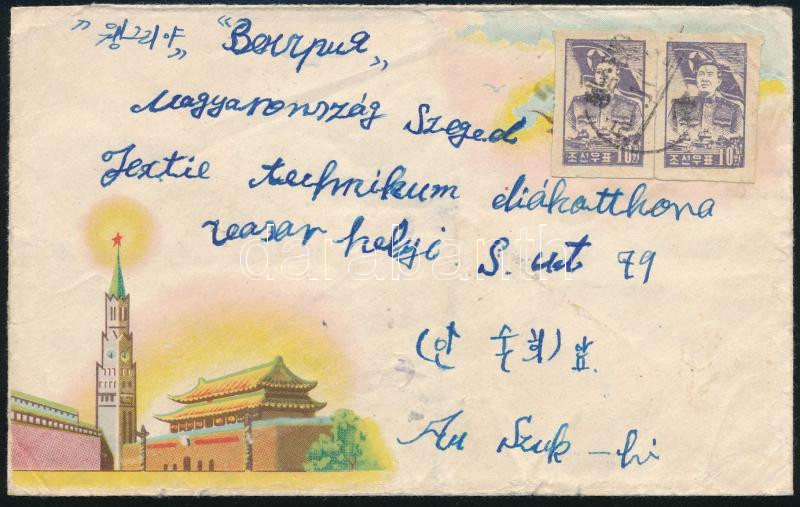 „웽그리야” "Венгрия„
Magyarország Szeged
Textil technikum diákotthona
vasarhelyi. S. ut 79
(안 숙희) 앞
An Szuk-hi
조선우표 10원
조선우표 10원
darabanth.com